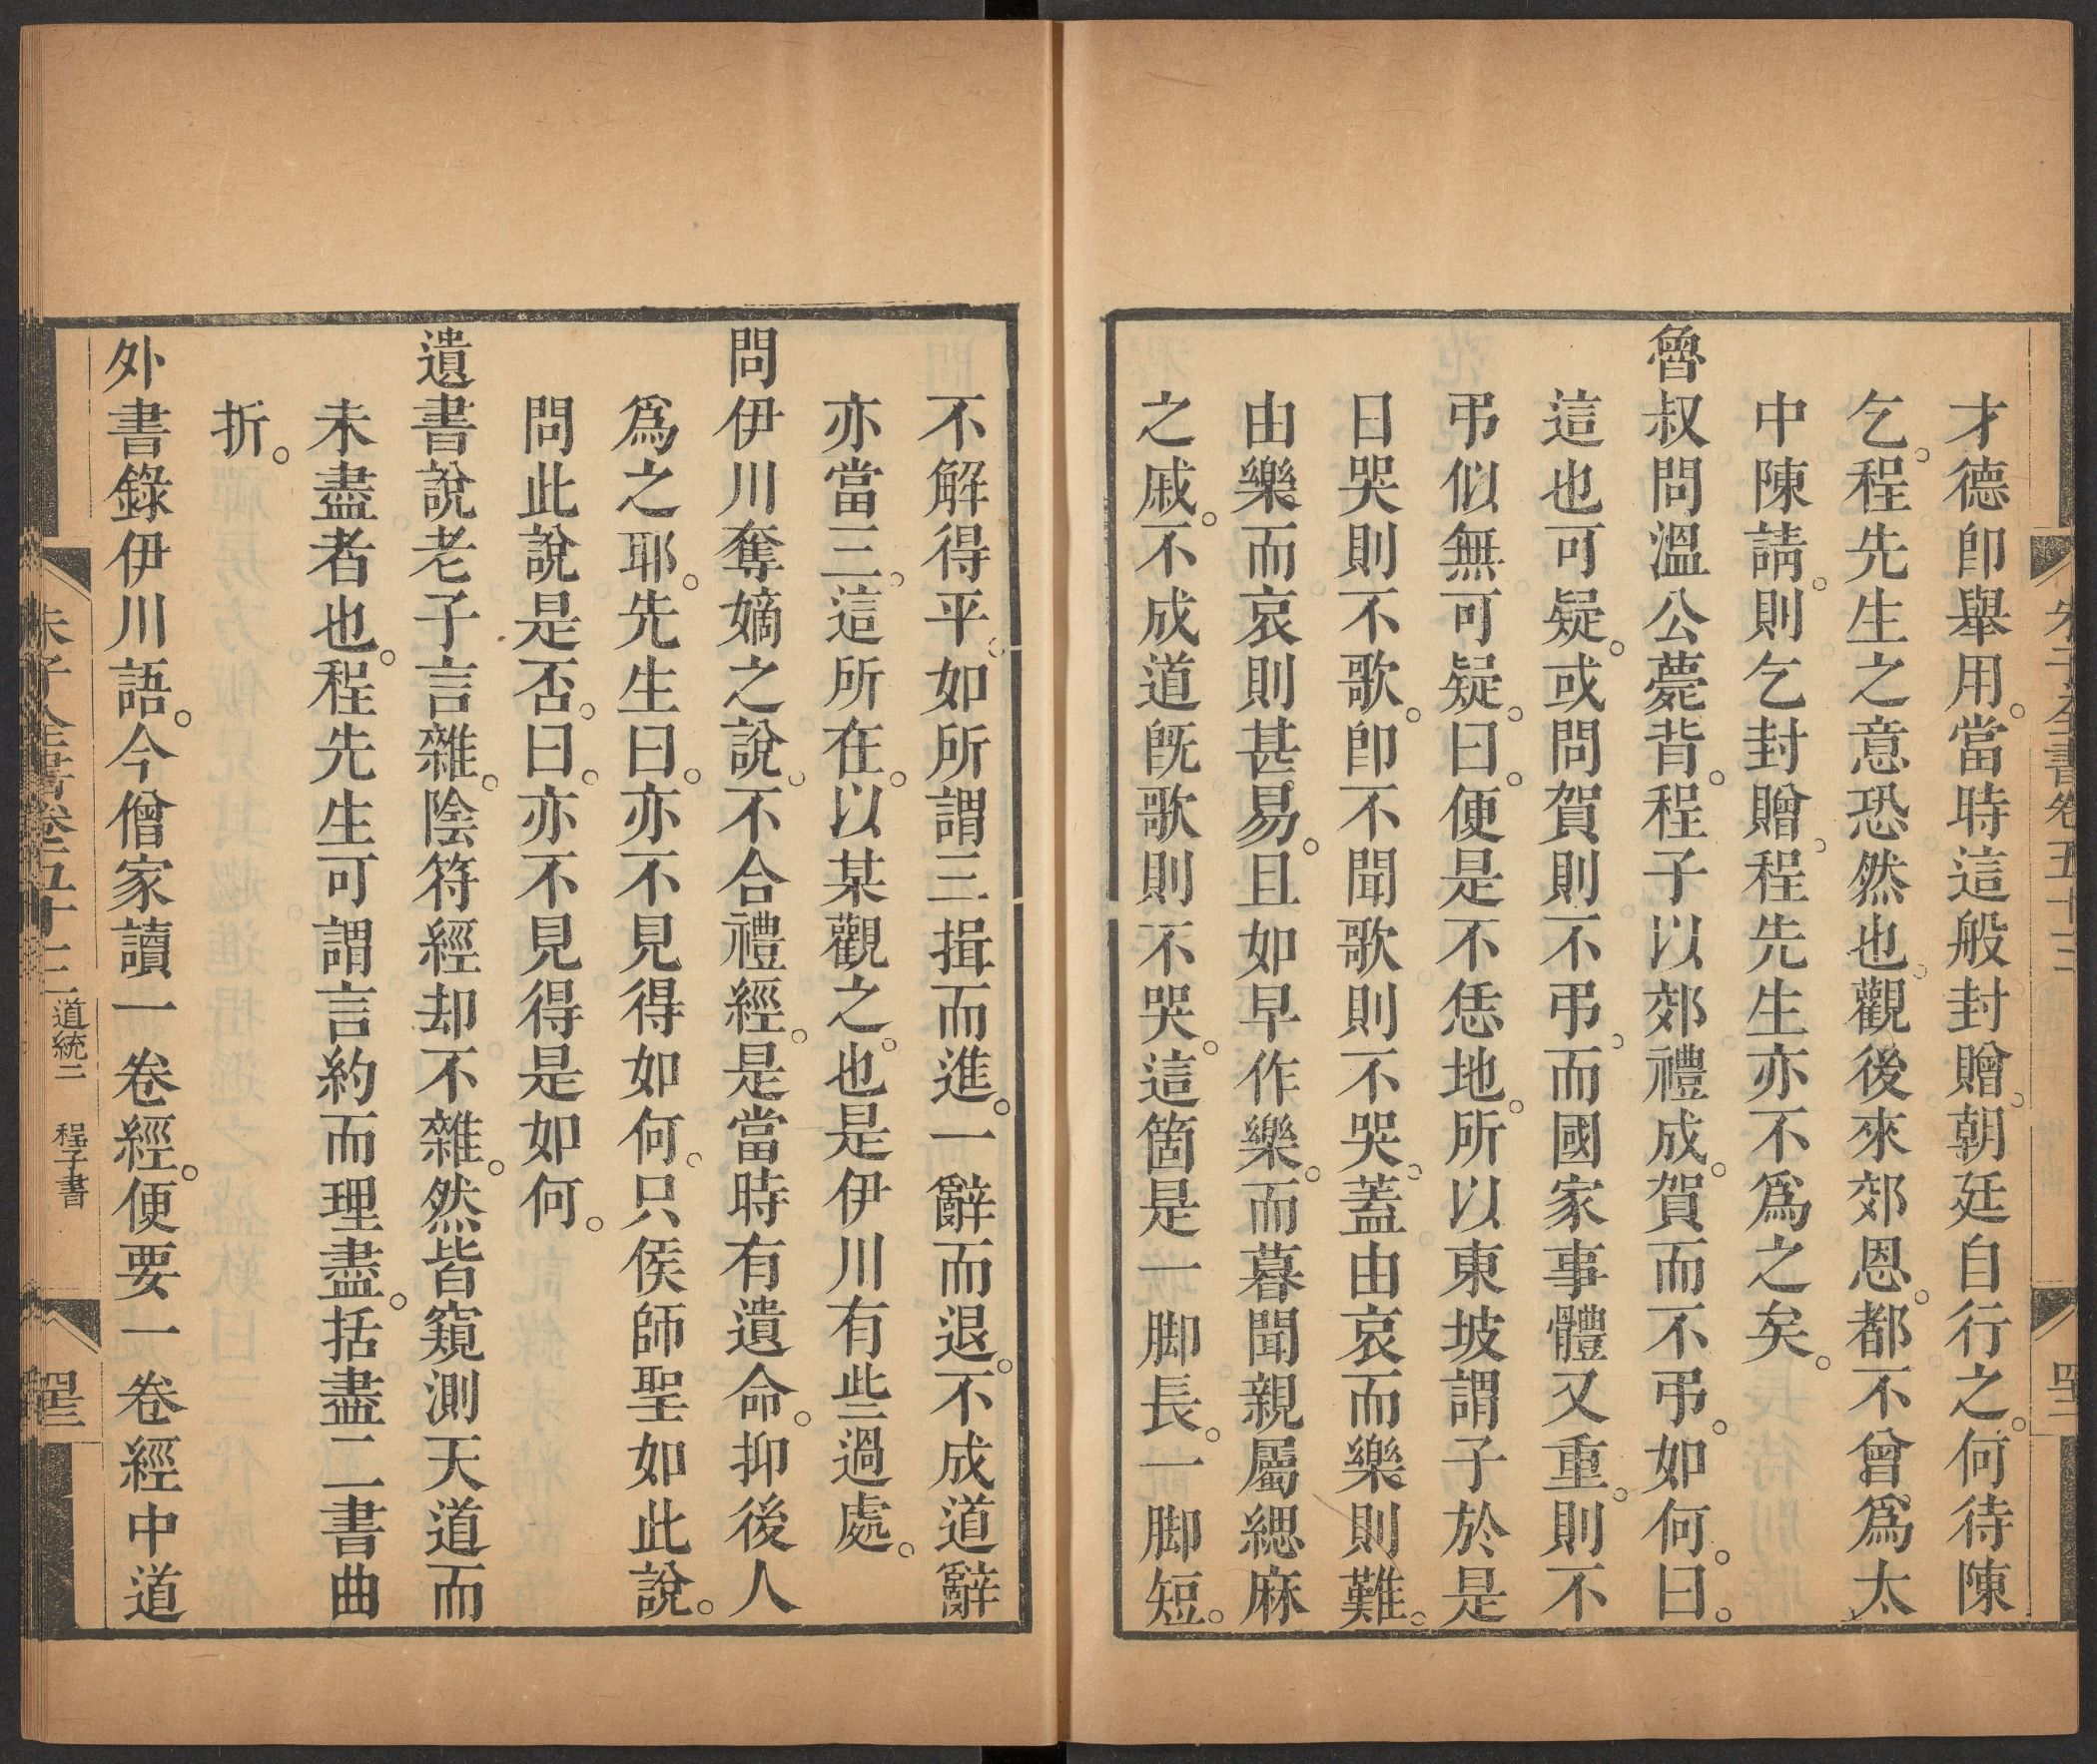 才德卽舉用。當時這般封贈。朝廷自行之。何待陳
乞。程先生之意恐然也。觀後來郊恩。都不曾爲太
中陳請。則乞封贈。程先生亦不爲之矣。
魯叔問溫公薨背。程子以郊禮成。賀而不弔。如何。曰。
這也可疑。或問賀則不弔。而國家事體又重。則不
弔似無可疑。曰。便是不恁地。所以東坡謂子於是
日哭則不歌。卽不聞歌則不哭。蓋由哀而樂則難。
由樂而哀則甚易。且如早作樂。而暮聞親屬緦麻
之戚。不成道旣歌則不哭。這箇是一脚長。一脚短。
不解得平。如所謂三揖而進。一辭而退。不成道辭
亦當三。這所在。以某觀之。也是伊川有些過處。
問伊川奪嫡之說。不合禮經。是當時有遺命。抑後人
爲之耶。先生曰。亦不見得如何。只侯師聖如此說。
問此說是否。曰。亦不見得是如何。
遺書說老子言雜。陰符經却不雜。然皆窺測天道而
未盡者也。程先生可謂言約而理盡。括盡二書曲
折。
外書錄伊川語。今僧家讀一卷經。便要一卷經中道
朱子全書卷五十三 道統二 程子書